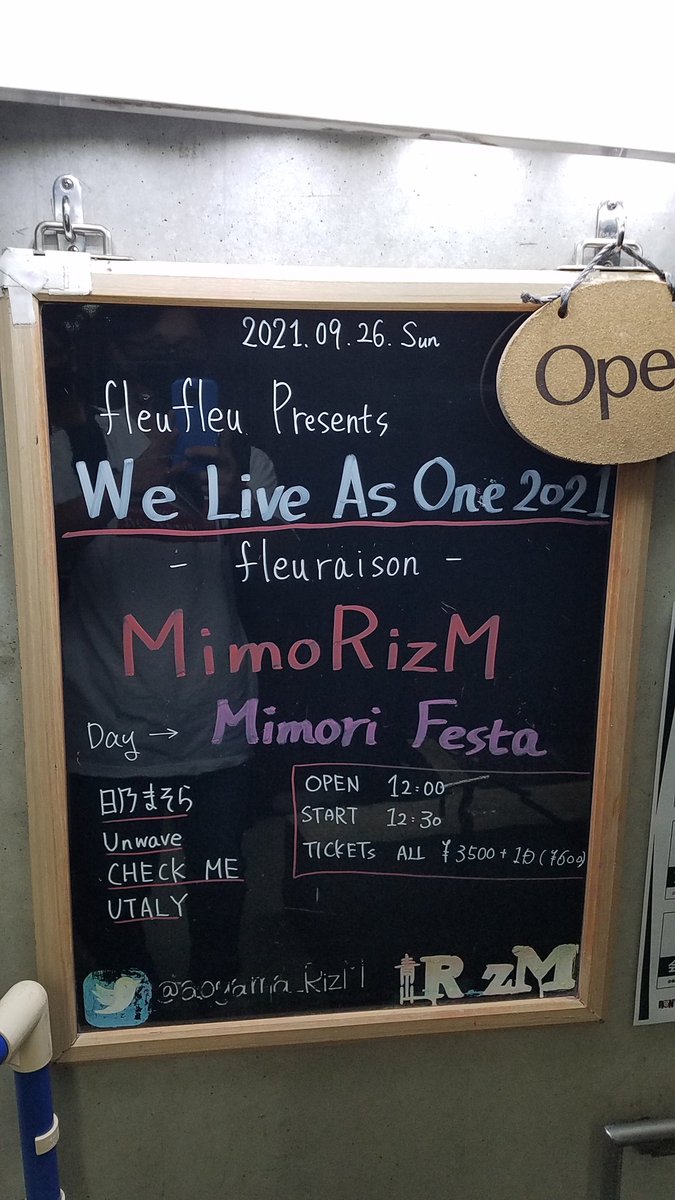 2021.09.26.Sun
Ope
fleufleu Presents
We Live As One 2021
- fleuraison -
MimoRizM
Day → Mimori Festa
日乃まそら
Unwave
CHECK ME
UTALY
OPEN 12:00
START 12:30
TICKETs ALL ¥3500+1D(¥600)
@aoyama_RizM
R zM